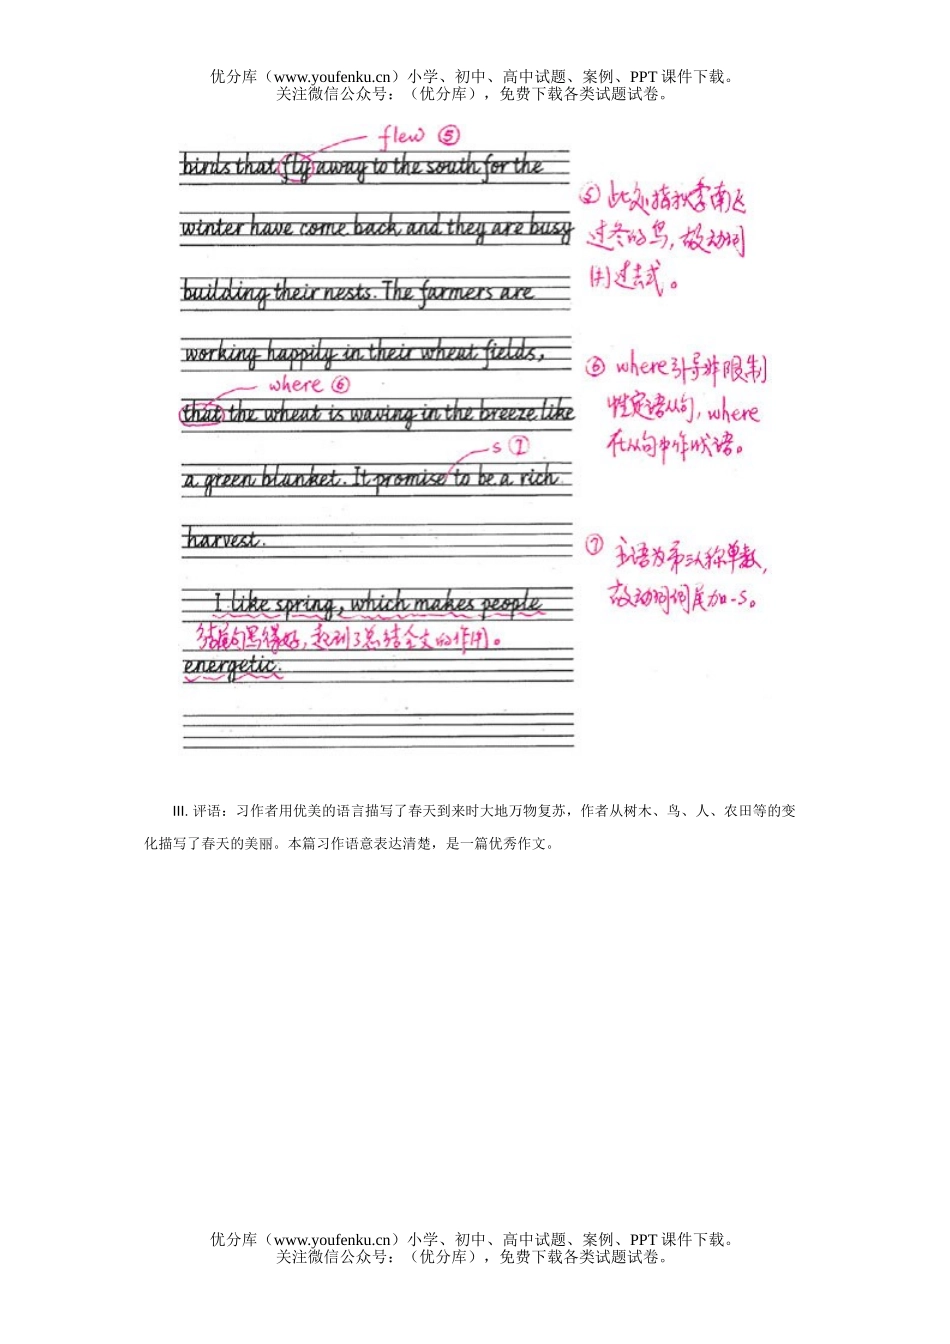 优分库（www.youfenku.cn）小学、初中、高中试题、案例、PPT 课件下载。
关注微信公众号：（优分库），免费下载各类试题试卷。
flew ⑤
birds that fly away to the south for the
⑤ 此处指秋季南飞
winter have come back and they are busy
过冬的鸟，故动词
building their nests. The farmers are
用过去式。
working happily in their wheat fields,
⑥ where引导非限制
where ⑥
that the wheat is waving in the breeze like
性定语从句，where
在从句中作状语。
s ⑦
a green blanket. It promise to be a rich
harvest.
⑦ 主语为第三人称单数，
故动词词尾加-s。
I like spring, which makes people
结尾句写得好，起到了总结全文的作用。
energetic.
III. 评语：习作者用优美的语言描写了春天到来时大地万物复苏，作者从树木、鸟、人、农田等的变
化描写了春天的美丽。本篇习作语意表达清楚，是一篇优秀作文。
优分库（www.youfenku.cn）小学、初中、高中试题、案例、PPT 课件下载。
关注微信公众号：（优分库），免费下载各类试题试卷。